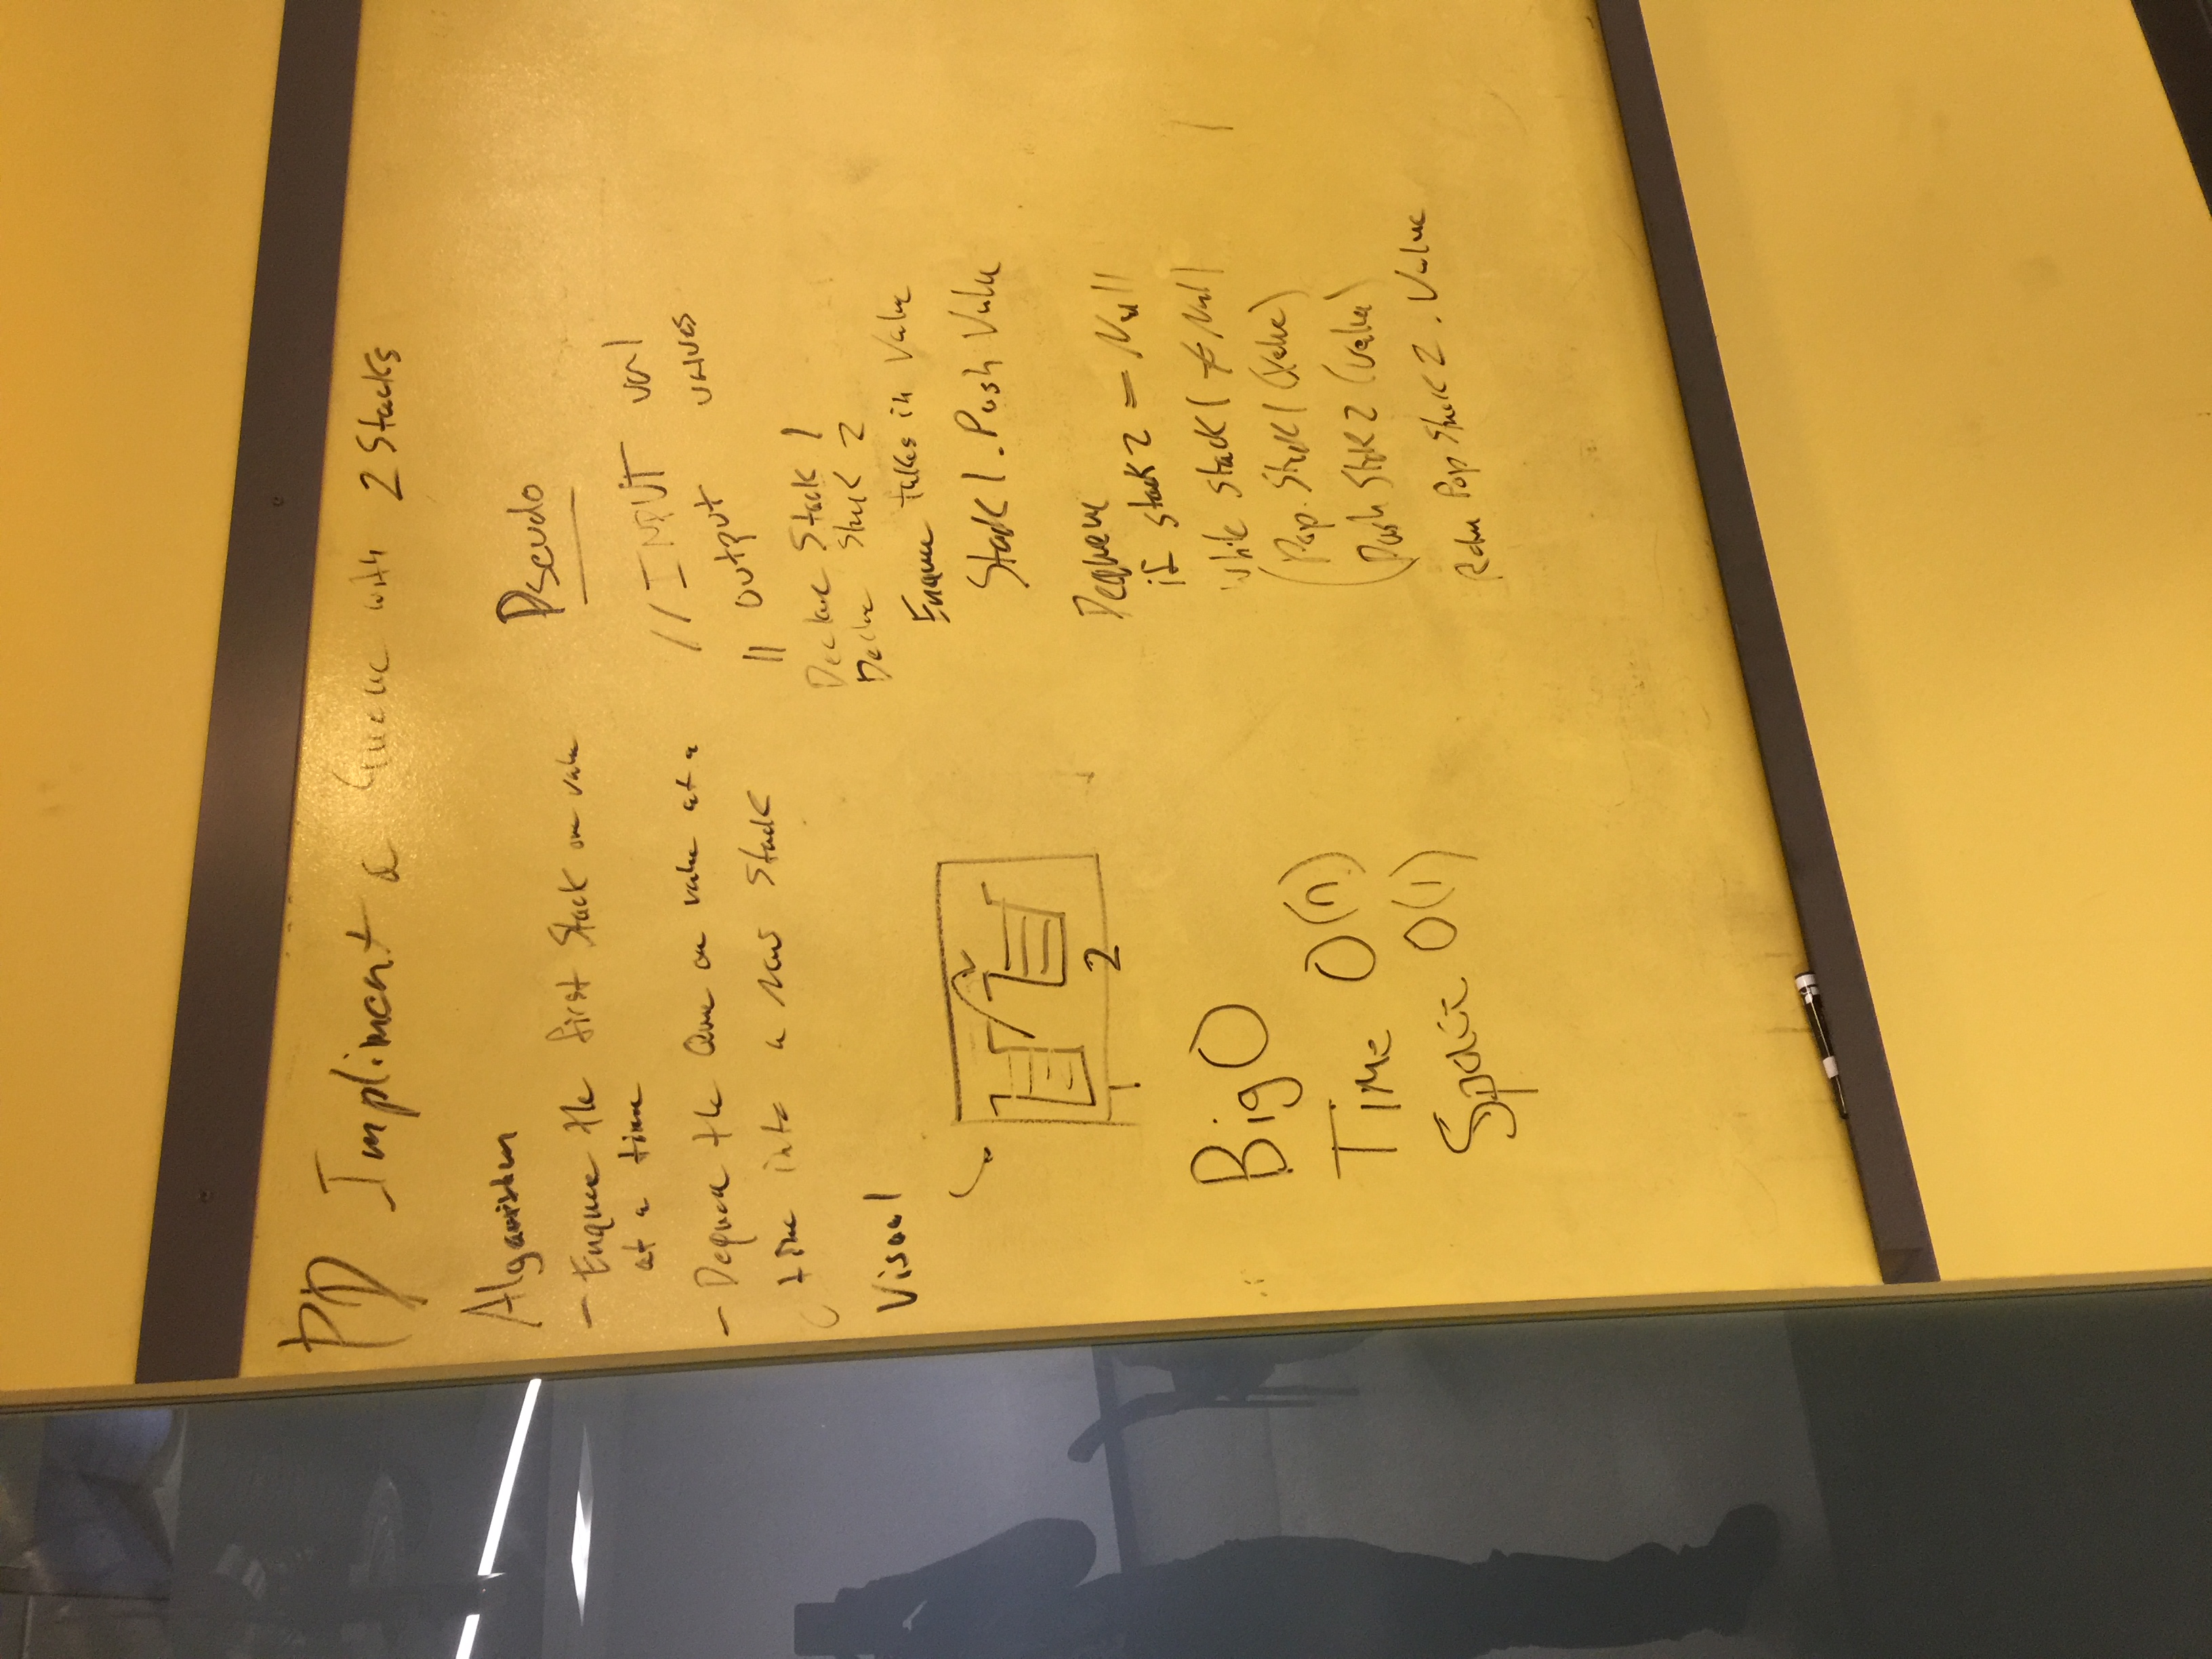 PD Impliment a Queue with 2 Stacks
Algorithm
- Enqueue the first Stack one value
at a time
- Dequeue the Que one value at a
time into a new Stack
Visual
1 2
Big O
Time O(n)
Space O(1)
Pseudo
// INPUT val
// output values
Declare Stack 1
Declare Stack 2
Enqueue takes in Value
Stack 1 . Push Value
Dequeue
if stack 2 = Null
While stack 1 ≠ Null
(Pop. Stack 1 (Value)
(Push Stack 2 (Value)
Return Pop Stack 2 . Value